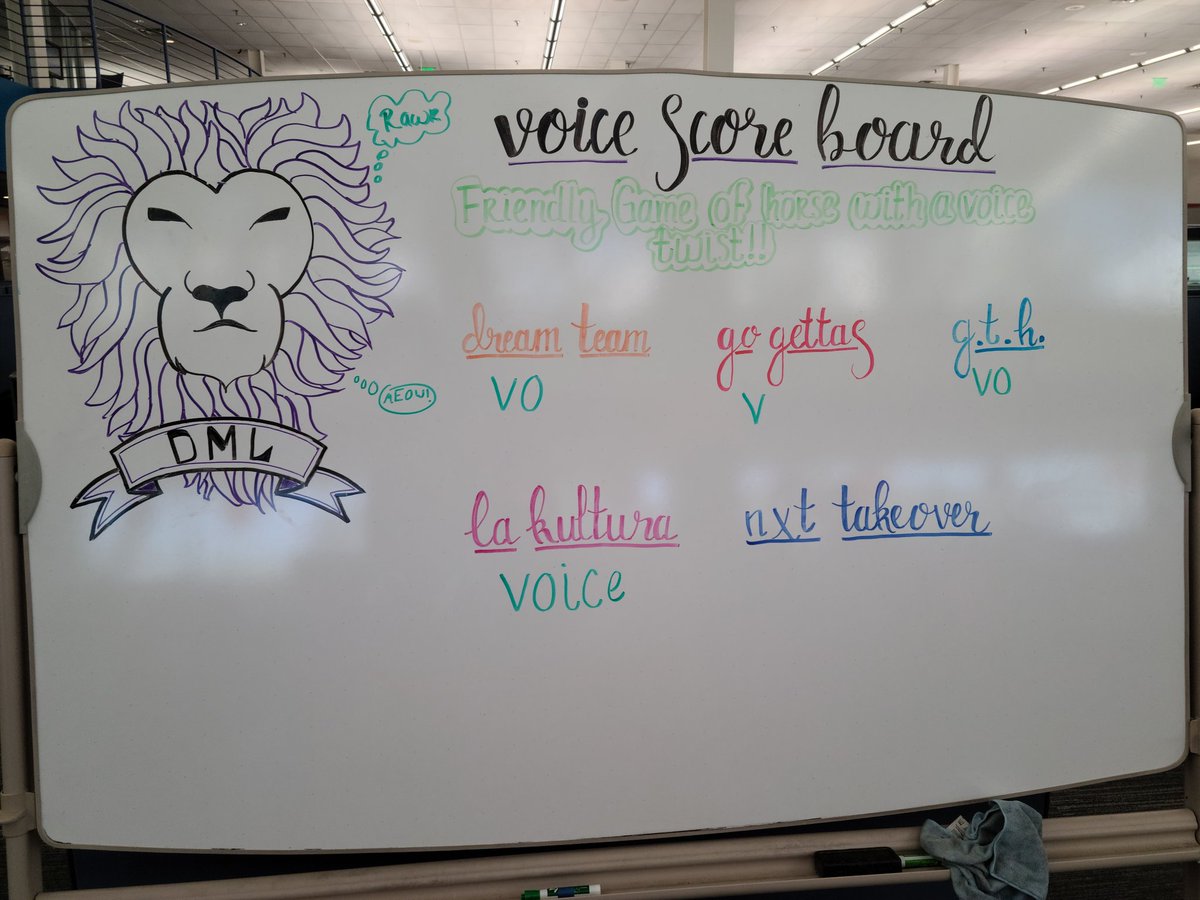 Rawr
voice Score board
Friendly Game of horse with a voice
twist!!
dream team
VO
go gettas
V
g.t.h.
VO
AEOU!
DML
la kultura
VOiCe
nxt takeover